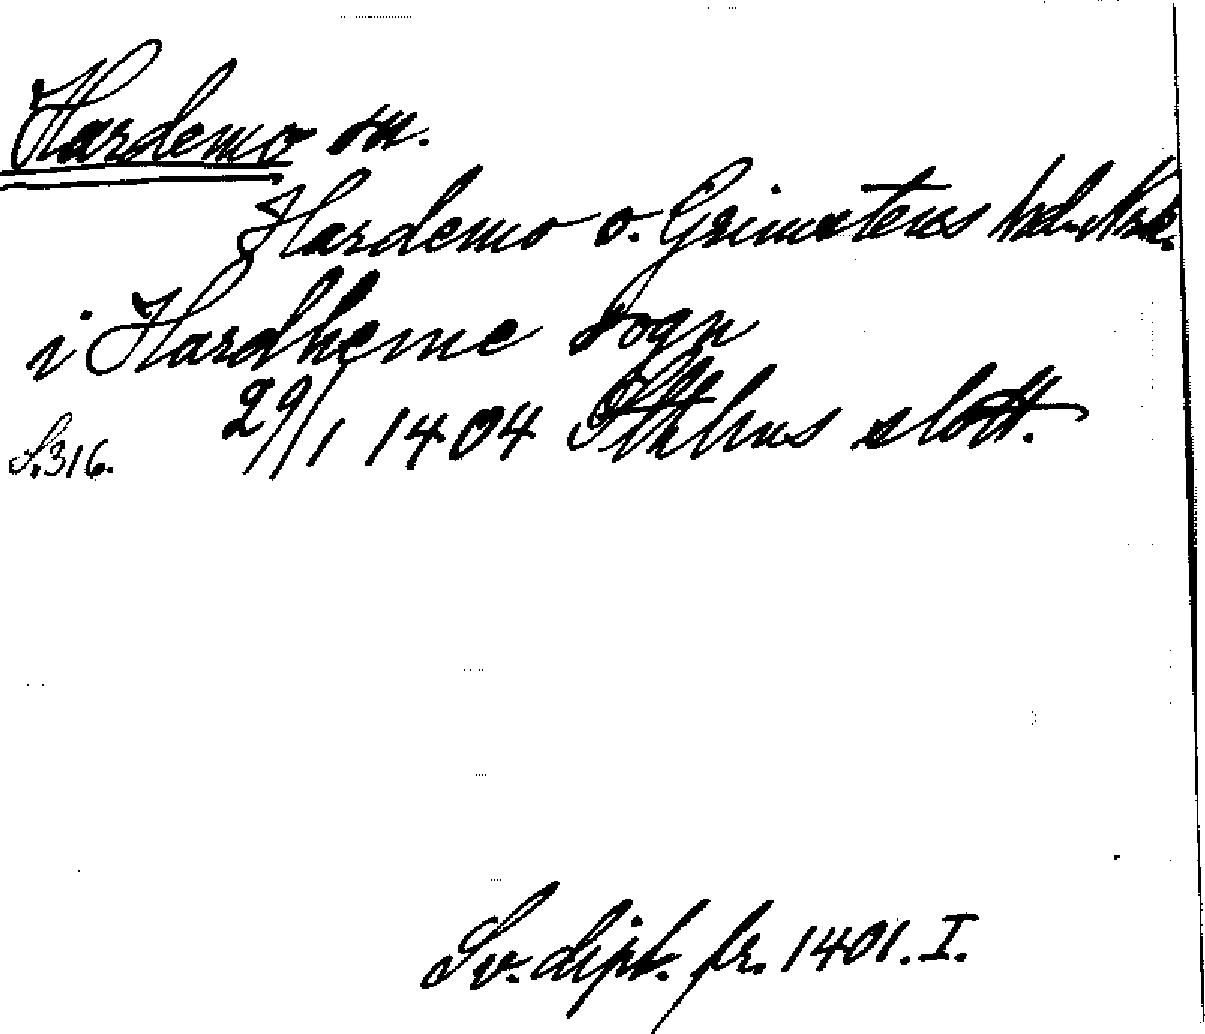 Hardemo sn.
Hardemo o. Grimstens hd. Nrk.
i Hardheme sogn
29/1 1404 slott.
S. 316.
Sv. dipl. fr. 1401. I.